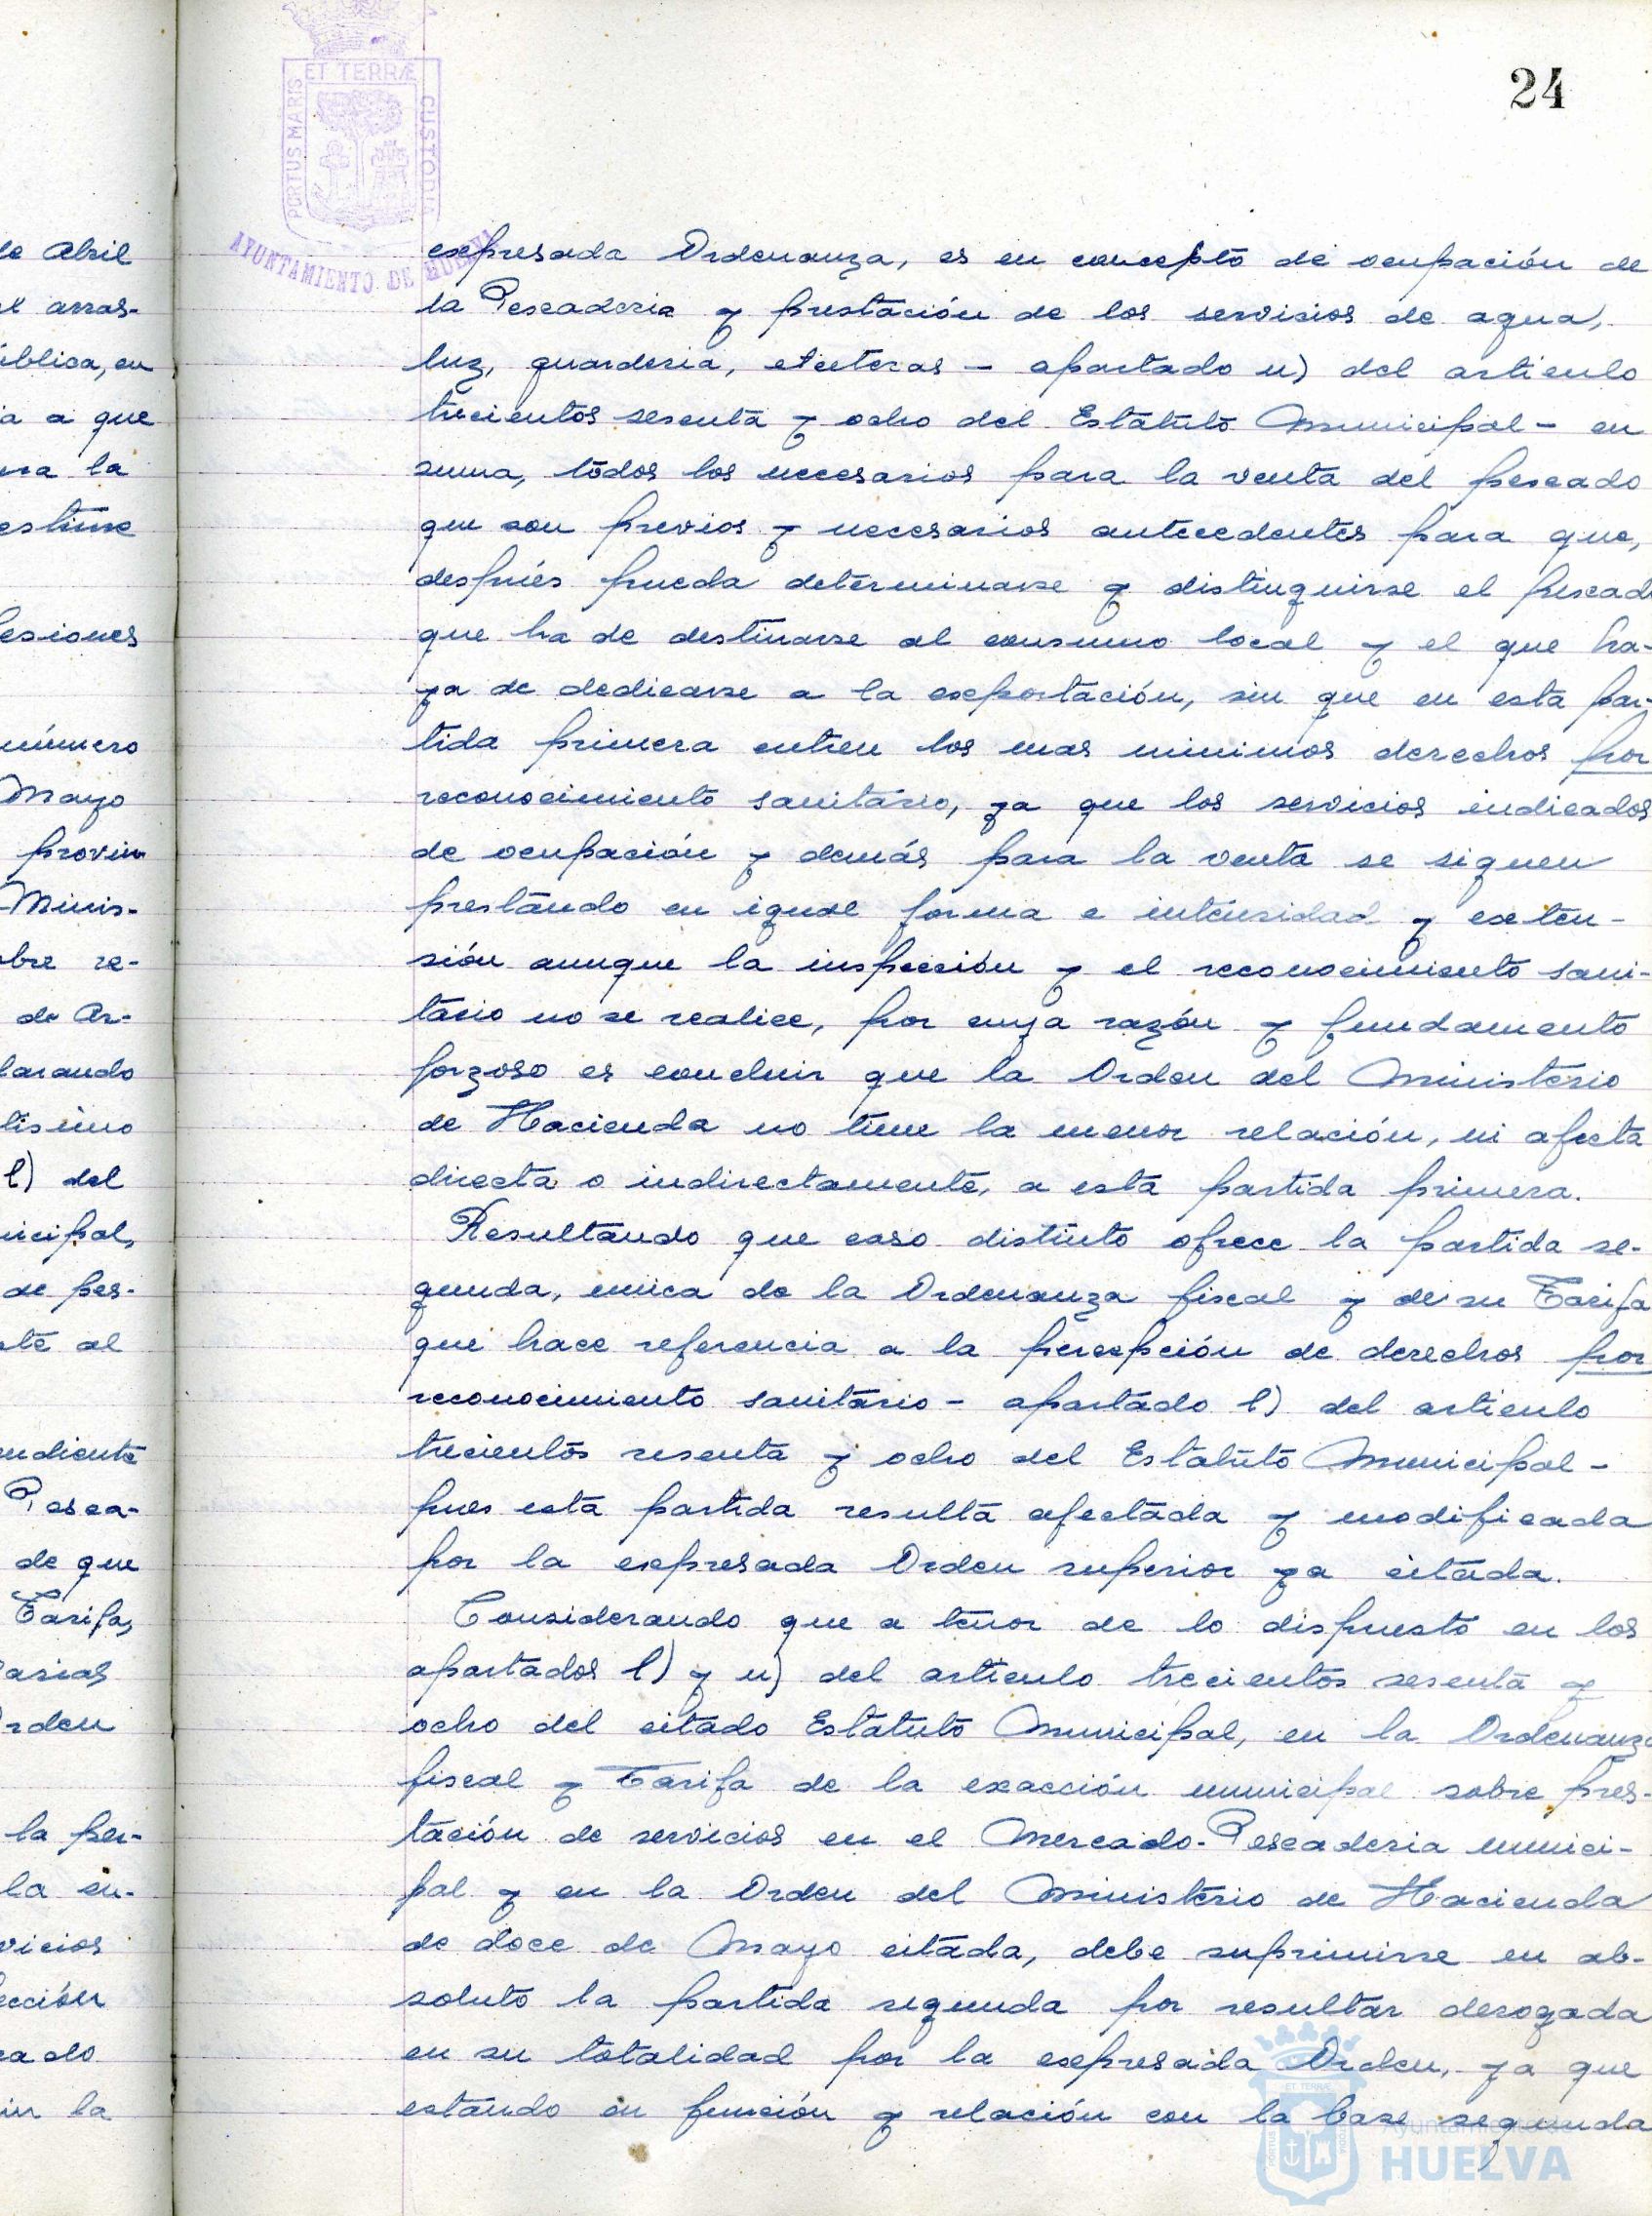 24
ET TERRÆ
PORTUS MARIS
CUSTODIA
AYUNTAMIENTO DE HUELVA
expresada Ordenanza, es en concepto de ocupación de
la Pescaderia y prestación de los servisios de agua,
luz, guarderia, etceteras - apartado n) del articulo
trecientos sesenta y ocho del Estatuto Municipal - en
suma, todos los necesarios para la venta del pescado
que son previos y necesarios antecedentes para que,
después pueda determinarse y distinguirse el pescado
que ha de destinarse al consumo local y el que ha-
ya de dedicarse a la exportación, sin que en esta par-
tida primera entren los mas minimos derechos por
reconocimiento sanitario, ya que los servicios indicados
de ocupación y demás para la venta se siguen
prestando en igual forma e intensidad y exten-
sión aunque la inspección y el reconocimiento sani-
tario no se realice, por cuya razón y fundamento
forzoso es concluir que la Orden del Ministerio
de Hacienda no tiene la menor relación, ni afecta
directa o indirectamente, a esta partida primera.
Resultando que caso distinto ofrece la partida se-
gunda, unica de la Ordenanza fiscal y de su Tarifa
que hace referencia a la percepción de derechos por
reconocimiento sanitario - apartado l) del articulo
trecientos sesenta y ocho del Estatuto Municipal -
pues esta partida resulta afectada y modificada
por la expresada Orden superior ya citada.
Considerando que a tenor de lo dispuesto en los
apartados l) y n) del articulo trecientos sesenta y
ocho del citado Estatuto Municipal, en la Ordenanza
fiscal y Tarifa de la exacción municipal sobre pres-
tación de servicios en el Mercado-Pescaderia munici-
pal y en la Orden del Ministerio de Hacienda
de doce de Mayo citada, debe suprimirse en ab-
soluto la partida segunda por resultar derogada
en su totalidad por la expresada Orden, ya que
estando en función y relación con la base segunda
de Abril
arras-
ública, en
a que
la
estime
número
Mayo
provin
Minis-
re-
de Ar-
l) del
de pes-
al
Pesca-
de que
Tarifa,
la per-
la in-
la
Ayuntamiento de
HUELVA